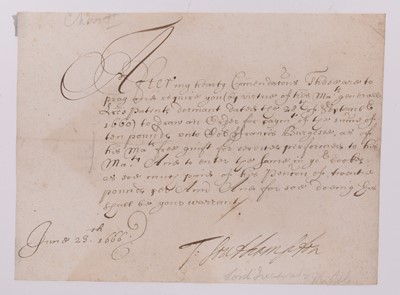 Charles II
After my hearty Comendations These are to
pray and require you by virtue of his Mats generall
Letters Patents dormant dated the of Septembr
1660 to draw an Order for paymt of the summe of
ten pounds unto Francis as of
his Mats free guift for service performed to his
Maty And to enter the same in yor bookes
as see many pars of his Pencon of twentie
pounds per Ann And for soe doeing this
shall be your warrant
June 23th 1666
T. Southampton
Lord Treasurer